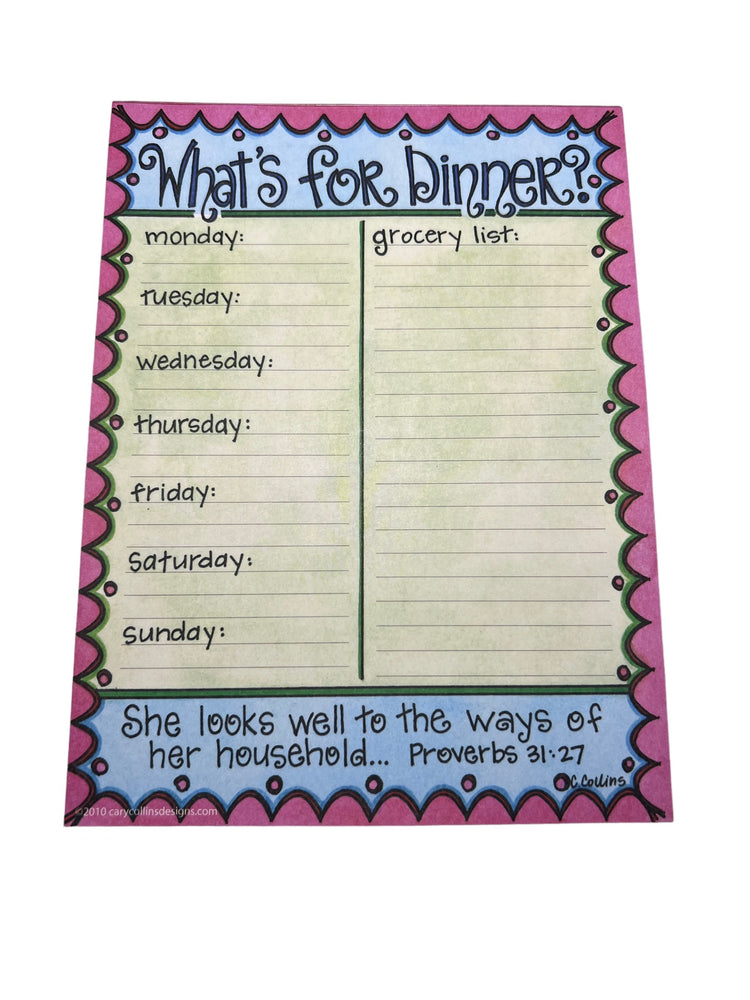 What's for Dinner?
monday:
tuesday:
wednesday:
thursday:
friday:
saturday:
sunday:
grocery list:
She looks well to the ways of
her household... Proverbs 31:27
C. Collins
©2010 carycollinsdesigns.com